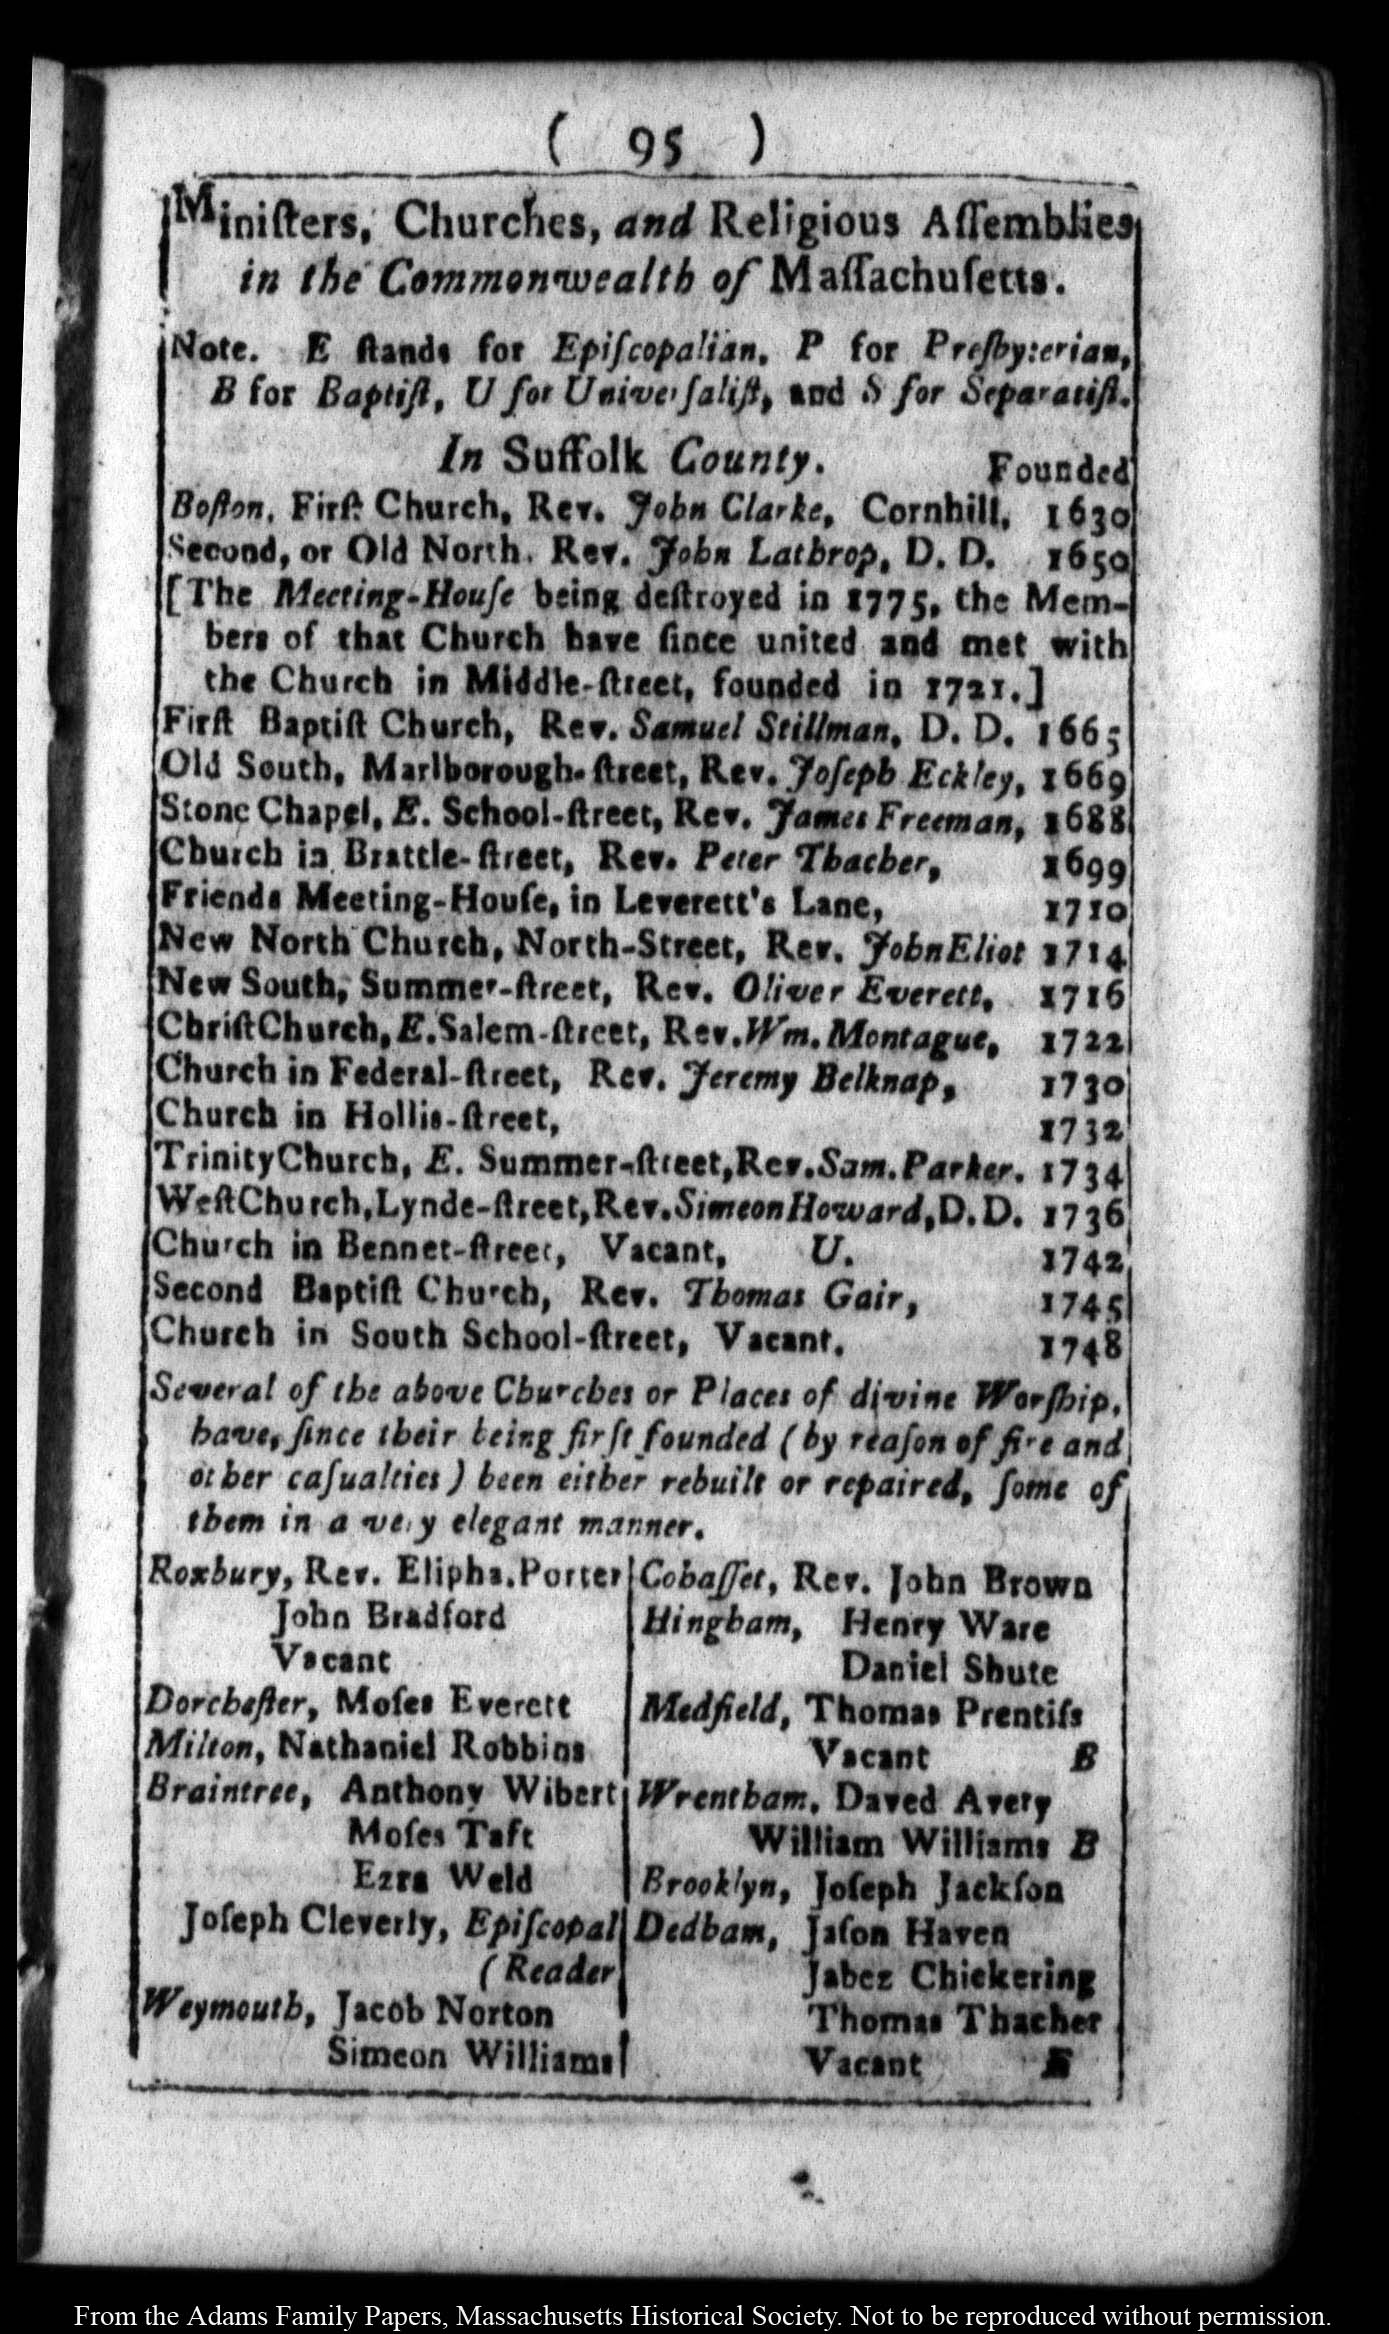 ( 95 )
Miniſters, Churches, and Religious Aſſemblies
in the Commonwealth of Maſſachuſetts.
Note. E ſtands for Epiſcopalian, P for Preſbyterian,
B for Baptiſt, U for Univerſaliſt, and S for Separatiſt.
In Suffolk County. Founded
Boſton, Firſt Church, Rev. John Clarke, Cornhill, 1630
Second, or Old North. Rev. John Lathrop, D. D. 1650
[The Meeting-Houſe being deſtroyed in 1775, the Mem-
bers of that Church have ſince united and met with
the Church in Middle-ſtreet, founded in 1721.]
Firſt Baptiſt Church, Rev. Samuel Stillman, D. D. 1665
Old South, Marlborough-ſtreet, Rev. Joſeph Eckley, 1669
Stone Chapel, E. School-ſtreet, Rev. James Freeman, 1688
Church in Brattle-ſtreet, Rev. Peter Thacher, 1699
Friends Meeting-Houſe, in Leverett's Lane, 1710
New North Church, North-Street, Rev. John Eliot 1714
New South, Summer-ſtreet, Rev. Oliver Everett, 1716
Chriſt Church, E. Salem-ſtreet, Rev. Wm. Montague, 1722
Church in Federal-ſtreet, Rev. Jeremy Belknap, 1730
Church in Hollis-ſtreet, 1732
Trinity Church, E. Summer-ſtreet, Rev. Sam. Parker. 1734
Weſt Church, Lynde-ſtreet, Rev. Simeon Howard, D. D. 1736
Church in Bennet-ſtreet, Vacant, U. 1742
Second Baptiſt Church, Rev. Thomas Gair, 1745
Church in South School-ſtreet, Vacant. 1748
Several of the above Churches or Places of divine Worſhip,
have, ſince their being firſt founded (by reaſon of fire and
other caſualties) been either rebuilt or repaired, ſome of
them in a very elegant manner.
Roxbury, Rev. Elipha. Porter
John Bradford
Vacant
Dorcheſter, Moſes Everett
Milton, Nathaniel Robbins
Braintree, Anthony Wibert
Moſes Taft
Ezra Weld
Joſeph Cleverly, Epiſcopal
(Reader
Weymouth, Jacob Norton
Simeon Williams
Cohaſſet, Rev. John Brown
Hingham, Henry Ware
Daniel Shute
Medfield, Thomas Prentiſs
Vacant B
Wrentham, Daved Avery
William Williams B
Brooklyn, Joſeph Jackſon
Dedham, Jaſon Haven
Jabez Chickering
Thomas Thacher
Vacant E
From the Adams Family Papers, Massachusetts Historical Society. Not to be reproduced without permission.